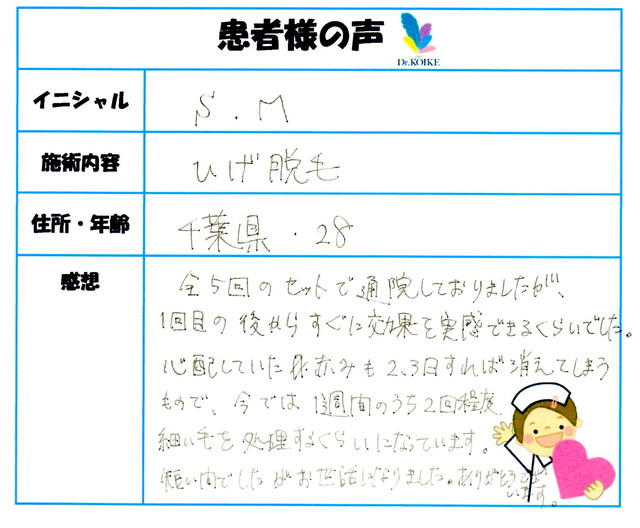 患者様の声
Dr.KOIKE
イニシャル
S.M
施術内容
ひげ脱毛
住所・年齢
千葉県・28
感想
全5回のセットで通院しておりましたが、
1回目の後からすぐに効果を実感できるくらいでした。
心配していた赤みも2、3日すれば消えてしまう
もので、今では1週間のうち2回程度
細い毛を処理するくらいになっています。
短い間でしたがお世話になりました。ありがとうござ
います。